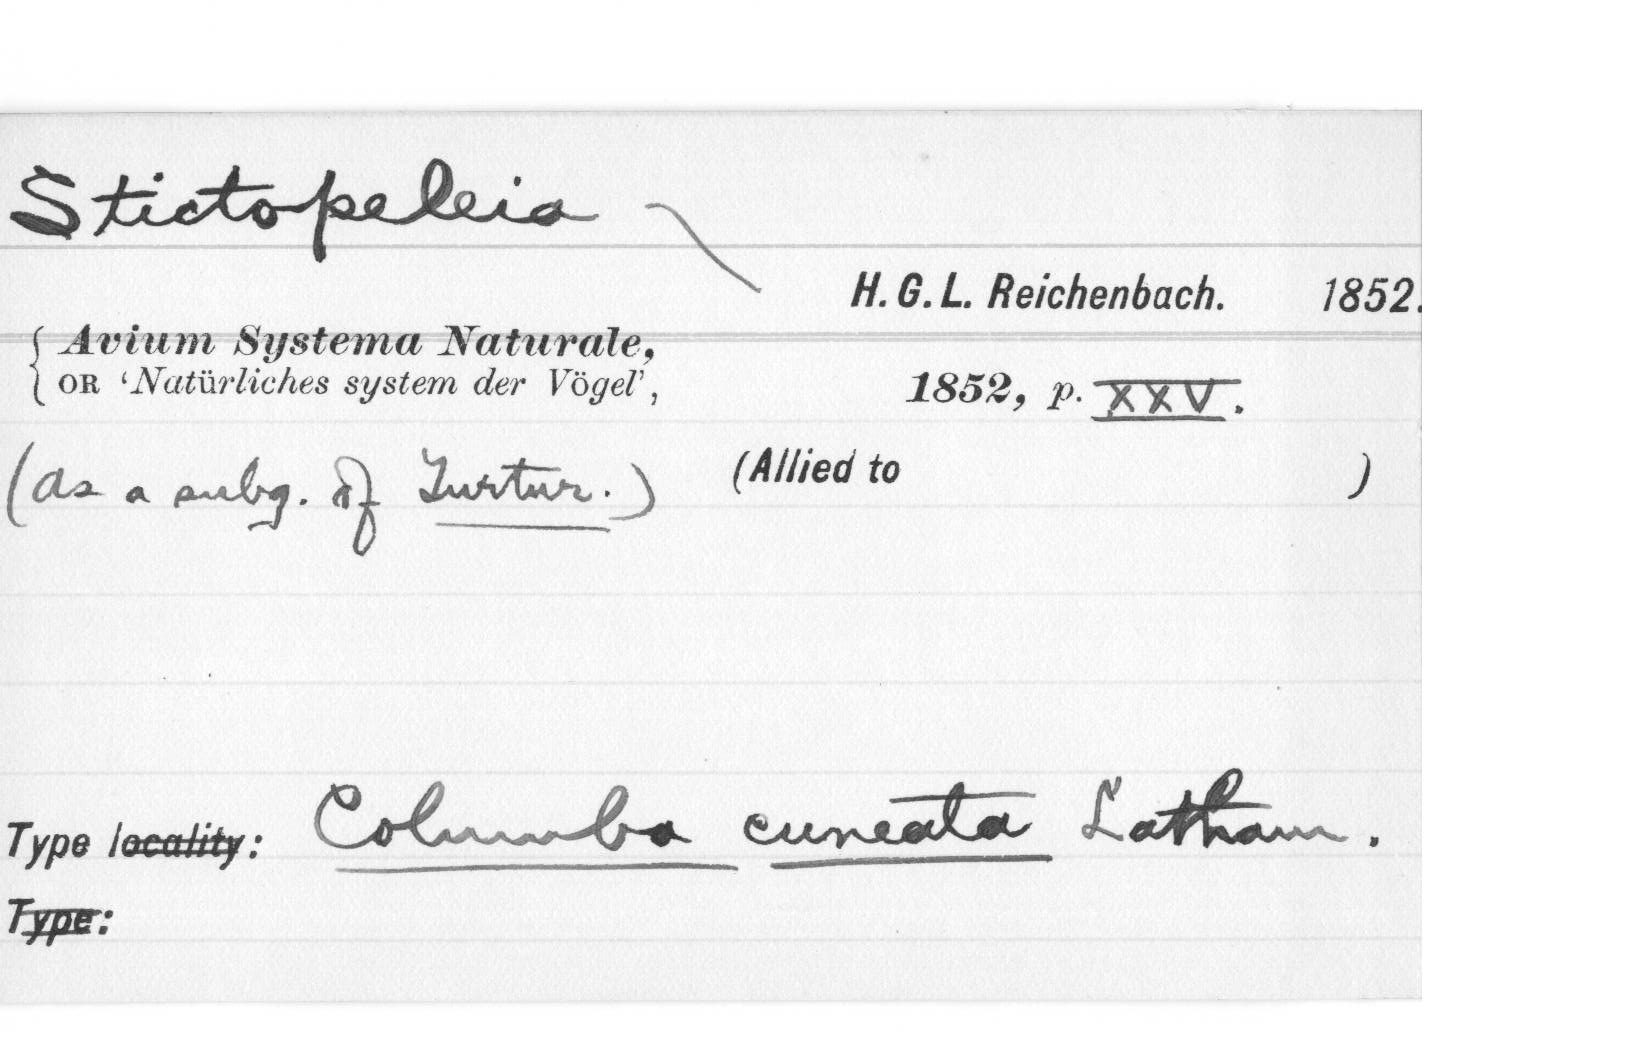 Stictopeleia
H. G. L. Reichenbach. 1852.
Avium Systema Naturale,
OR ‘Natürliches system der Vögel’, 1852, p. XXV.
(as a subg. of Turtur.) (Allied to )
Type locality: Columba cuneata Latham.
Type: